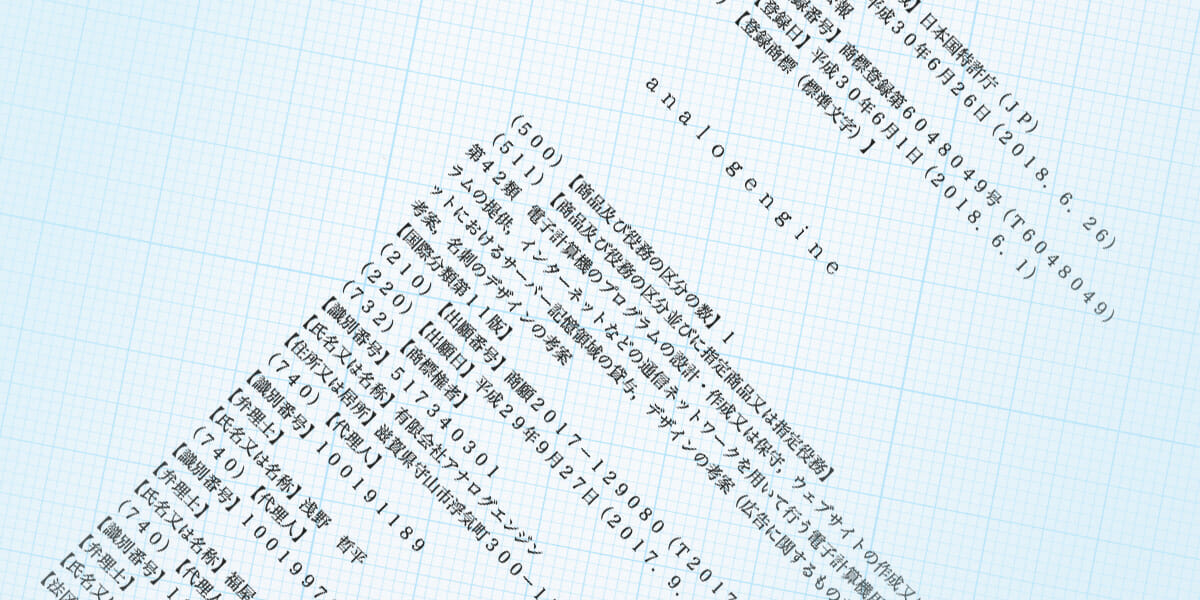 】日本国特許庁（ＪＰ）
平成３０年６月２６日（２０１８．６．２６）
録番号】商標登録第６０４８０４９号（Ｔ６０４８０４９）
【登録日】平成３０年６月１日（２０１８．６．１）
【登録商標（標準文字）】
ａｎａｌｏｇｅｎｇｉｎｅ
（５００）【商品及び役務の区分の数】１
（５１１）【商品及び役務の区分並びに指定商品又は指定役務】
第４２類　電子計算機のプログラムの設計・作成又は保守，ウェブサイトの作成又
ラムの提供，インターネットなどの通信ネットワークを用いて行う電子計算機用
ットにおけるサーバー記憶領域の貸与，デザインの考案（広告に関するもの
考案，名刺のデザインの考案
【国際分類第１１版】
（２１０）【出願番号】商願２０１７－１２９０８０（Ｔ２０１７
（２２０）【出願日】平成２９年９月２７日（２０１７．９．
（７３２）【商標権者】
【識別番号】５１７３４０３０１
【氏名又は名称】有限会社アナログエンジン
【住所又は居所】滋賀県守山市浮気町３００－１
（７４０）【代理人】
【識別番号】１００１９１１８９
【弁理士】
【氏名又は名称】浅野　哲平
（７４０）【代理人】
【識別番号】１００１９９７
【弁理士】
【氏名又は名称】福屋
（７４０）【代理人
【識別番号】１
【弁理士】
【氏名又